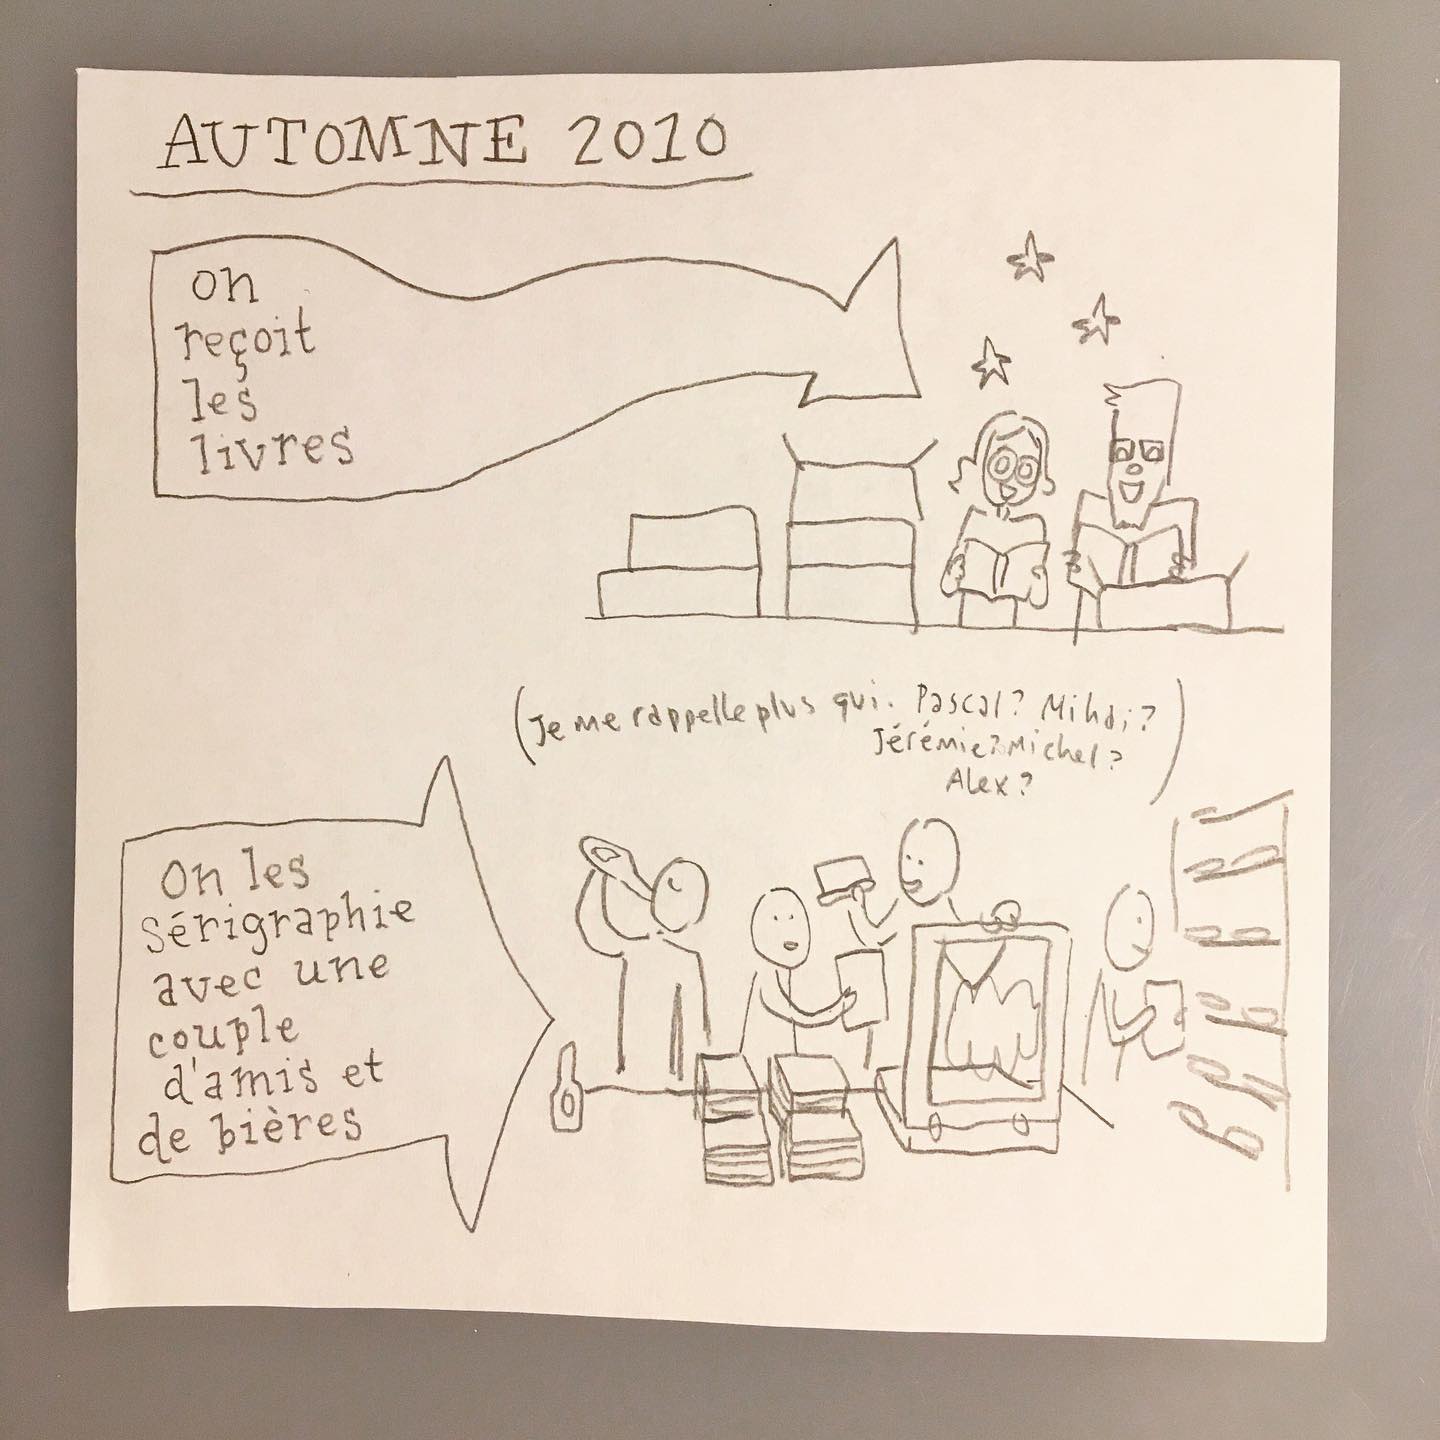 AUTOMNE 2010
on
reçoit
les
livres
(Je me rappelle plus qui. Pascal? Mihai?
Jérémie? Michel?
Alex?)
On les
sérigraphie
avec une
couple
d'amis et
de bières